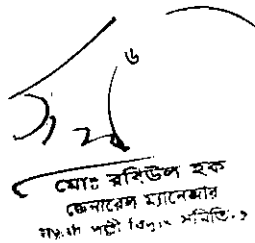 ৬
মোঃ রবিউল হক
জেনারেল ম্যানেজার
পল্লী বিদ্যুৎ সমিতি-১